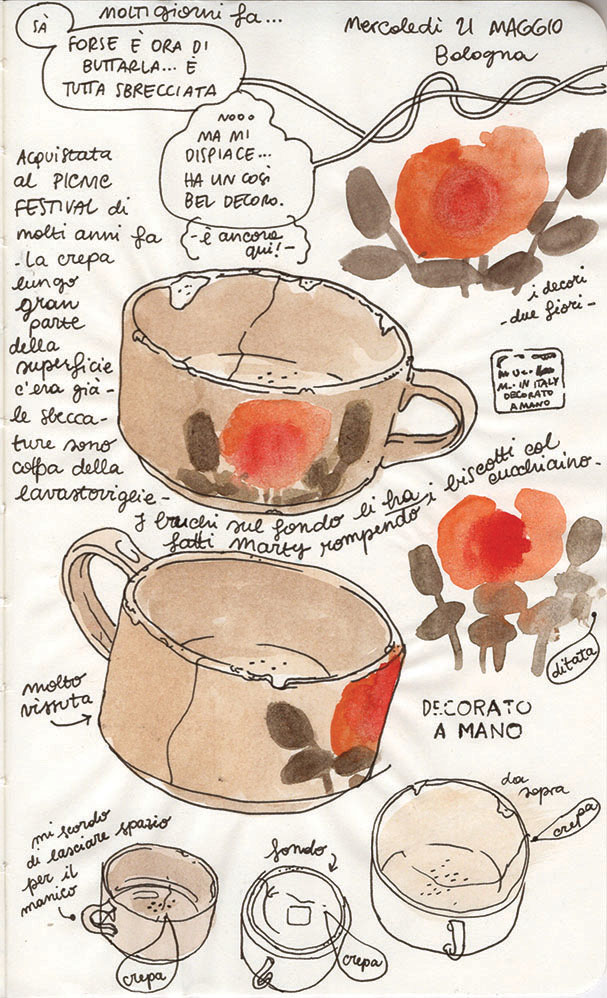 MOLTI GIORNI fa...
SÀ
FORSE È ORA DI
BUTTARLA... È
TUTTA SBRECCIATA
MERCOLEDÌ 21 MAGGIO
Bologna
NOOO
MA MI
DISPIACE...
HA UN COSÌ
BEL DECORO.
- è ancora
qui! -
ACQUISTATA
al PICNIC
FESTIVAL di
molti anni fa
- La crepa
lungo
gran
parte
della
superficie
c'era già -
le sbecca-
ture sono
colpa della
lavastoviglie -
i decori
- due fiori -
M.. IN ITALY
DECORATO
A MANO
I buchi sul fondo li ha
fatti Marty rompendo i biscotti col
cucchiaino -
ditata
molto
vissuta
DECORATO
A MANO
mi scordo
di lasciare spazio
per il
manico
crepa
fondo
crepa
da
sopra
crepa